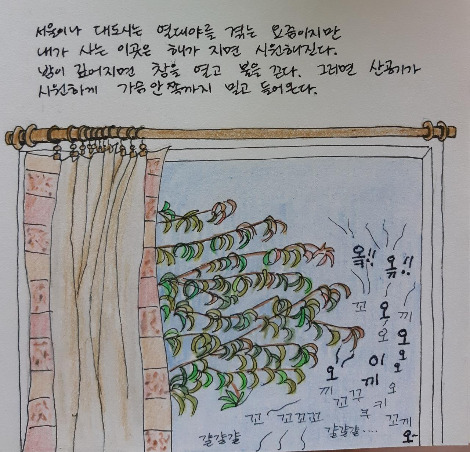 서울이나 대도시는 열대야를 겪는 요즘이지만
내가 사는 이곳은 해가 지면 시원해진다.
밤이 깊어지면 창을 열고 불을 끈다. 그러면 산공기가
시원하게 가슴 안쪽까지 밀고 들어온다.
욱!! 욱!!
꼬 오 끼
오 오
오 이 오
끼 끼 오
꼬꾸 키
꾹 꼬끼
꼬 꼬꼬꼬 오-
걀걀걀 걀걀걀....